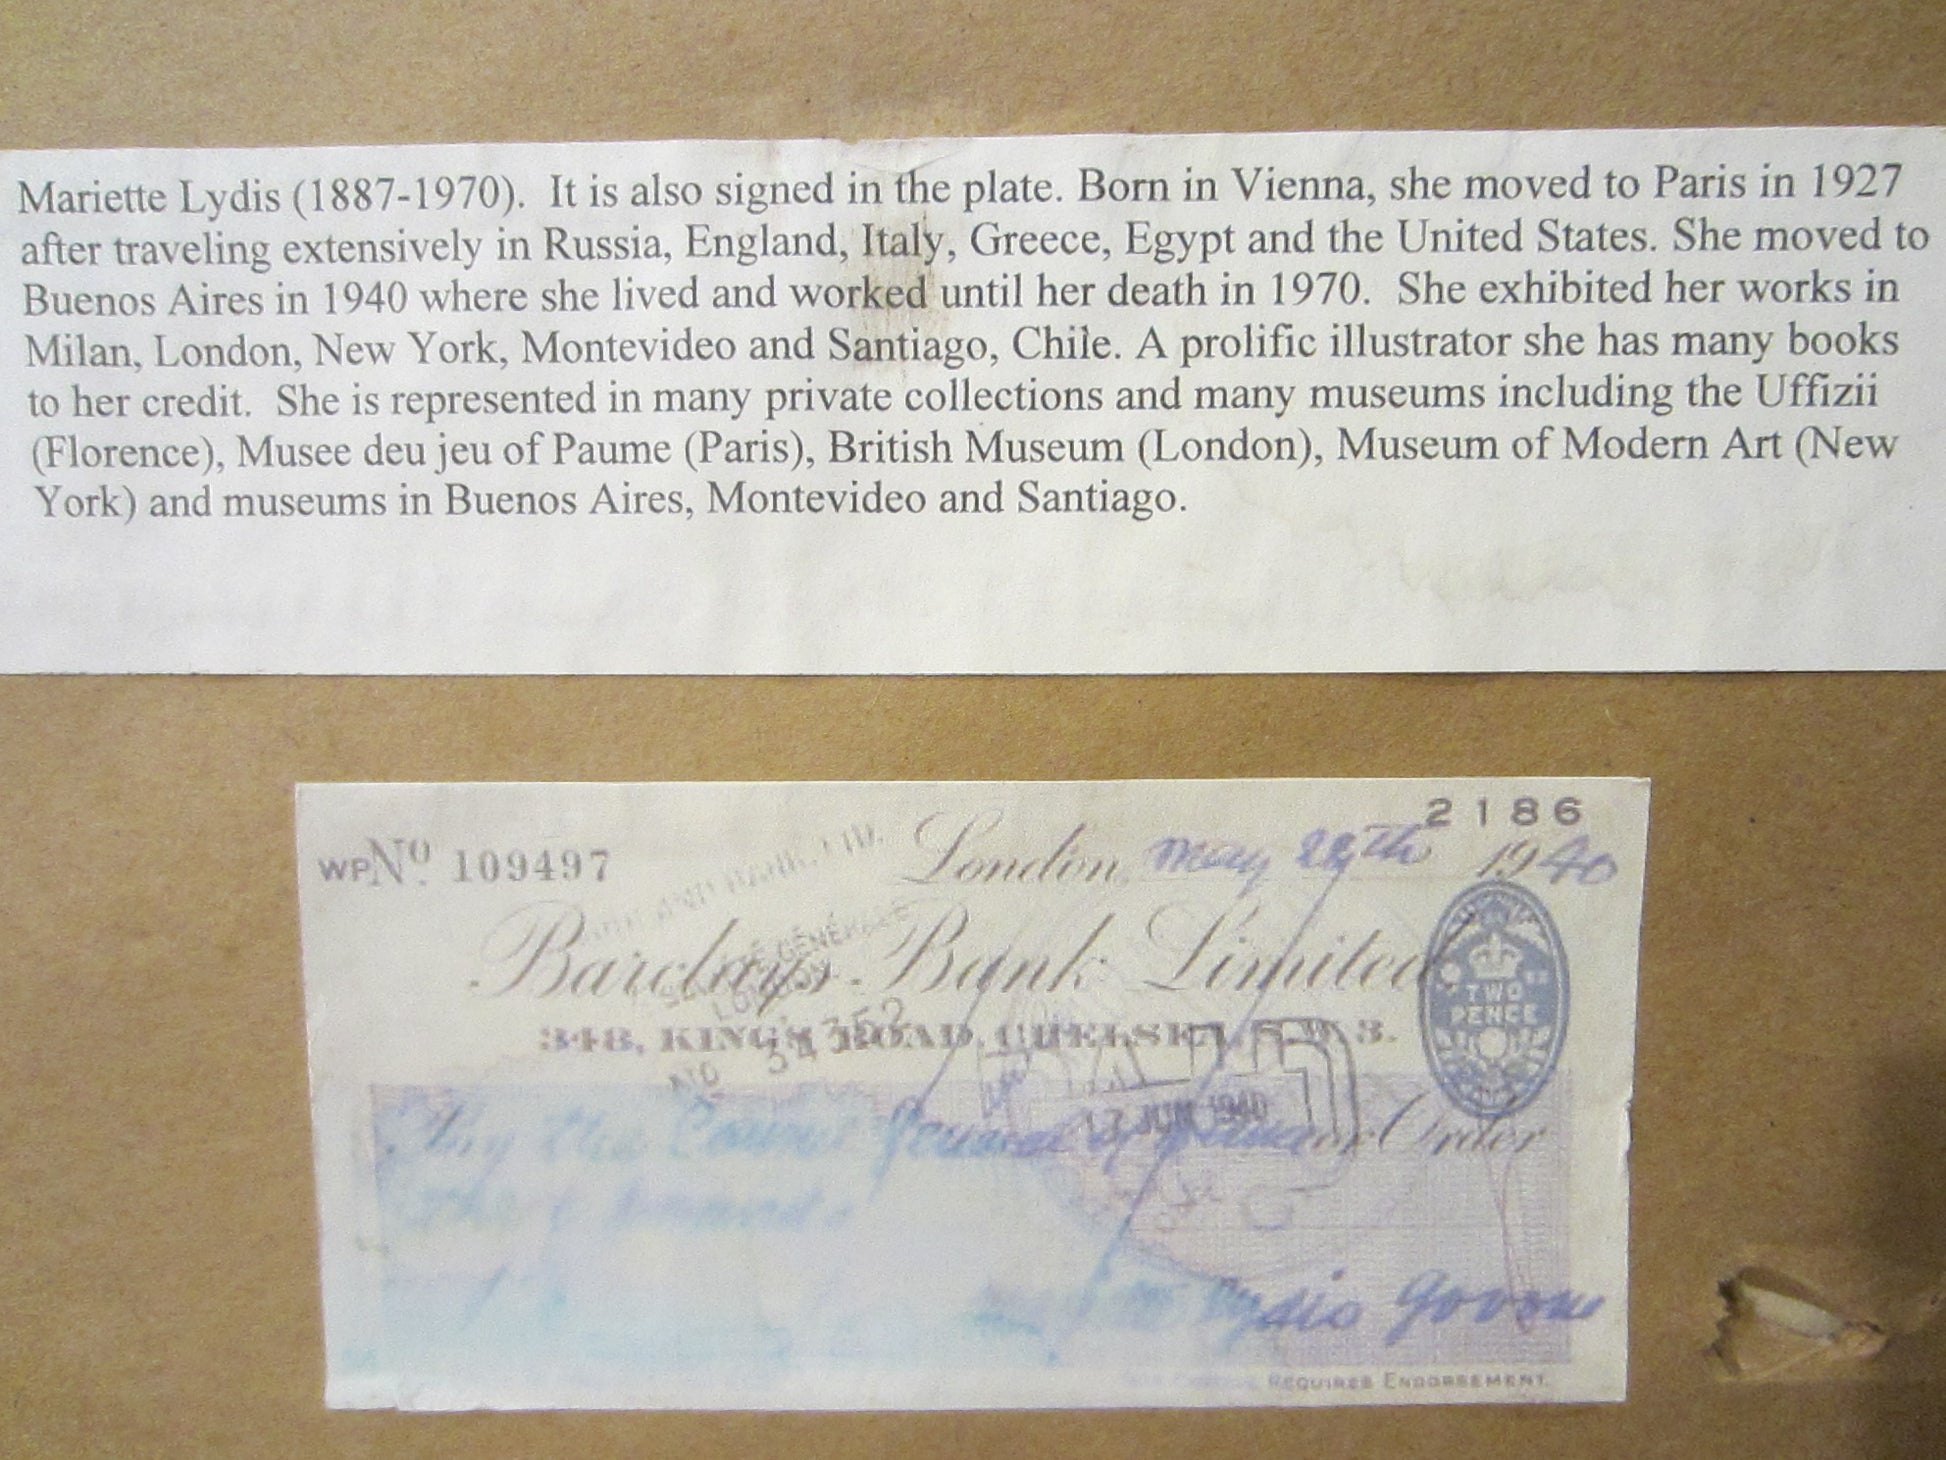 Mariette Lydis (1887-1970).  It is also signed in the plate. Born in Vienna, she moved to Paris in 1927
after traveling extensively in Russia, England, Italy, Greece, Egypt and the United States. She moved to
Buenos Aires in 1940 where she lived and worked until her death in 1970.  She exhibited her works in
Milan, London, New York, Montevideo and Santiago, Chile. A prolific illustrator she has many books
to her credit.  She is represented in many private collections and many museums including the Uffizii
(Florence), Musee deu jeu of Paume (Paris), British Museum (London), Museum of Modern Art (New
York) and museums in Buenos Aires, Montevideo and Santiago.
2186
WP Nº 109497
London, May 1940
Barclays Bank Limited
348, KING'S ROAD, CHELSEA, S.W.3.
TWO
PENCE
SOCIÉTÉ GÉNÉRALE
LONDON
NO 34352
PAID
JUN 1940
Pay the General of or Order
Lydis Govone
REQUIRES ENDORSEMENT.